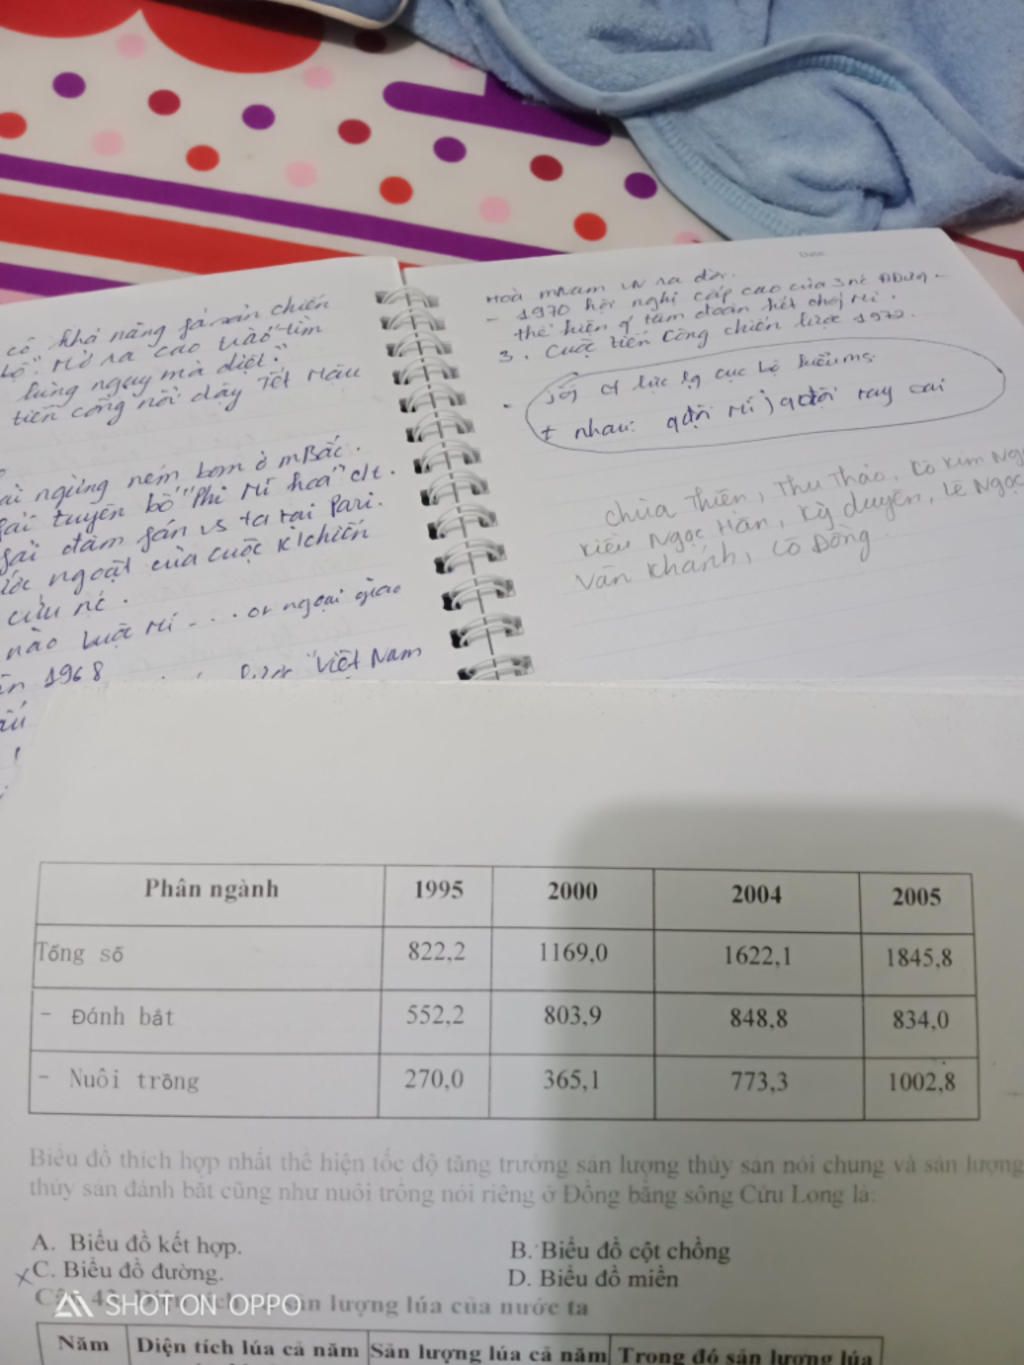 Date
có khả năng
cao vào "tìm
lùng ngụy mà diệt".
tiến công nổi dậy Tết Mậu
ngừng ném bom ở mBắc.
tuyên bố "Phi Mĩ hoá" c/t.
đàm fán vs ta tại Pari.
ngoặt của cuộc k/chiến
cứu nc.
nào buộc Mĩ - . . . or ngoại giao
1968
"Việt Nam
Hoà mNam VN ra đời.
- 1970 hội nghị cấp cao của 3 nc ĐDương -
thể hiện q' tâm đoàn kết chống Mĩ.
3. Cuộc tiến công chiến lược 1972.
lực lg
+ nhau: qđội Mĩ, qđội tay sai
Chùa Thiên, Thu Thảo, Cô Kim
Kiều Ngọc Hân, Kỳ duyên, Lê Ngọc
Vân Khánh, Cô Đồng
Phân ngành 1995 2000 2004 2005
Tổng số 822,2 1169,0 1622,1 1845,8
- Đánh bắt 552,2 803,9 848,8 834,0
- Nuôi trồng 270,0 365,1 773,3 1002,8
Biểu đồ thích hợp nhất thể hiện tốc độ tăng trưởng sản lượng thủy sản nói chung và sản lượng
thủy sản đánh bắt cũng như nuôi trồng nói riêng ở Đồng bằng sông Cửu Long là:
A. Biểu đồ kết hợp. B. Biểu đồ cột chồng
C. Biểu đồ đường. D. Biểu đồ miền
sản lượng lúa của nước ta
SHOT ON OPPO
Năm Diện tích lúa cả năm Sản lượng lúa cả năm Trong đó sản lượng lúa